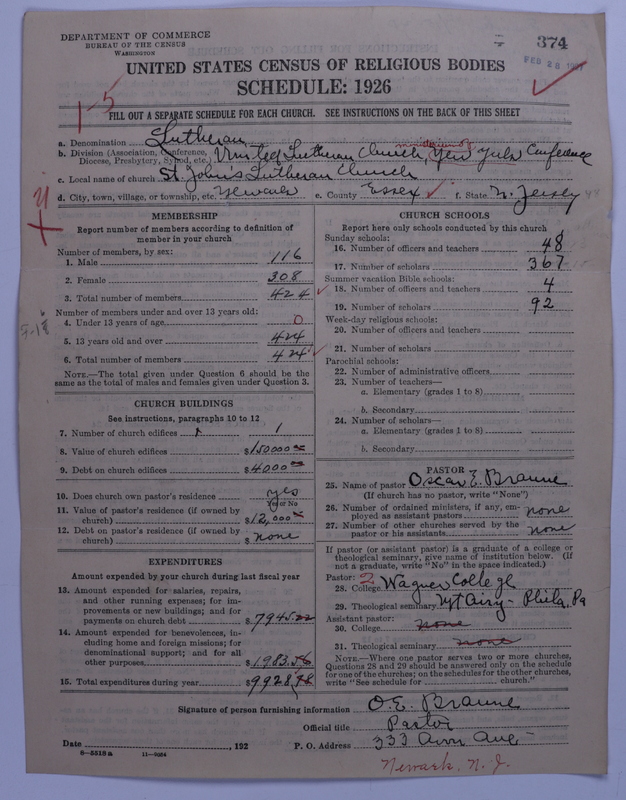 DEPARTMENT OF COMMERCE
BUREAU OF THE CENSUS
WASHINGTON
374
FEB 28
UNITED STATES CENSUS OF RELIGIOUS BODIES
SCHEDULE: 1926
1-5
FILL OUT A SEPARATE SCHEDULE FOR EACH CHURCH. SEE INSTRUCTIONS ON THE BACK OF THIS SHEET
a. Denomination Lutheran
b. Division (Association, Conference, Diocese, Presbytery, Synod, etc.) United Lutheran Church, New York Conference
c. Local name of church St John's Lutheran Church
d. City, town, village, or township, etc. Newark e. County Essex f. State N. Jersey
MEMBERSHIP
Report number of members according to definition of
member in your church
Number of members, by sex:
1. Male 116
2. Female 308
3. Total number of members 424
Number of members under and over 13 years old:
4. Under 13 years of age 0
5. 13 years old and over 424
6. Total number of members 424
NOTE.—The total given under Question 6 should be the
same as the total of males and females given under Question 3.
CHURCH BUILDINGS
See instructions, paragraphs 10 to 12
7. Number of church edifices 1
8. Value of church edifices $150000 00
9. Debt on church edifices $4000 00
10. Does church own pastor's residence yes
Yes or No
11. Value of pastor's residence (if owned by
church) $12,000
12. Debt on pastor's residence (if owned by
church) $ none
EXPENDITURES
Amount expended by your church during last fiscal year
13. Amount expended for salaries, repairs,
and other running expenses; for im-
provements or new buildings; and for
payments on church debt $7945.22
14. Amount expended for benevolences, in-
cluding home and foreign missions; for
denominational support; and for all
other purposes $1983.56
15. Total expenditures during year $9928.78
CHURCH SCHOOLS
Report here only schools conducted by this church
Sunday schools:
16. Number of officers and teachers 48
17. Number of scholars 367
Summer vacation Bible schools:
18. Number of officers and teachers 4
19. Number of scholars 92
Week-day religious schools:
20. Number of officers and teachers
21. Number of scholars
Parochial schools:
22. Number of administrative officers
23. Number of teachers—
a. Elementary (grades 1 to 8)
b. Secondary
24. Number of scholars—
a. Elementary (grades 1 to 8)
b. Secondary
PASTOR
25. Name of pastor Oscar E. Braune
(If church has no pastor, write "None")
26. Number of ordained ministers, if any, em-
ployed as assistant pastors none
27. Number of other churches served by the
pastor or his assistants none
If pastor (or assistant pastor) is a graduate of a college or
theological seminary, give name of institution below. (If
not a graduate, write "No" in the space indicated.)
Pastor: 2
28. College Wagner College
29. Theological seminary Mt Airy - Phila. Pa
Assistant pastor:
30. College none
31. Theological seminary none
NOTE.—Where one pastor serves two or more churches,
Questions 28 and 29 should be answered only on the schedule
for one of the churches; on the schedules for the other churches,
write "See schedule for church."
Signature of person furnishing information O. E. Braune
Official title Pastor
Date , 192 P. O. Address 333 Avon Ave
8-5318a 11-9084
Newark, N. J.